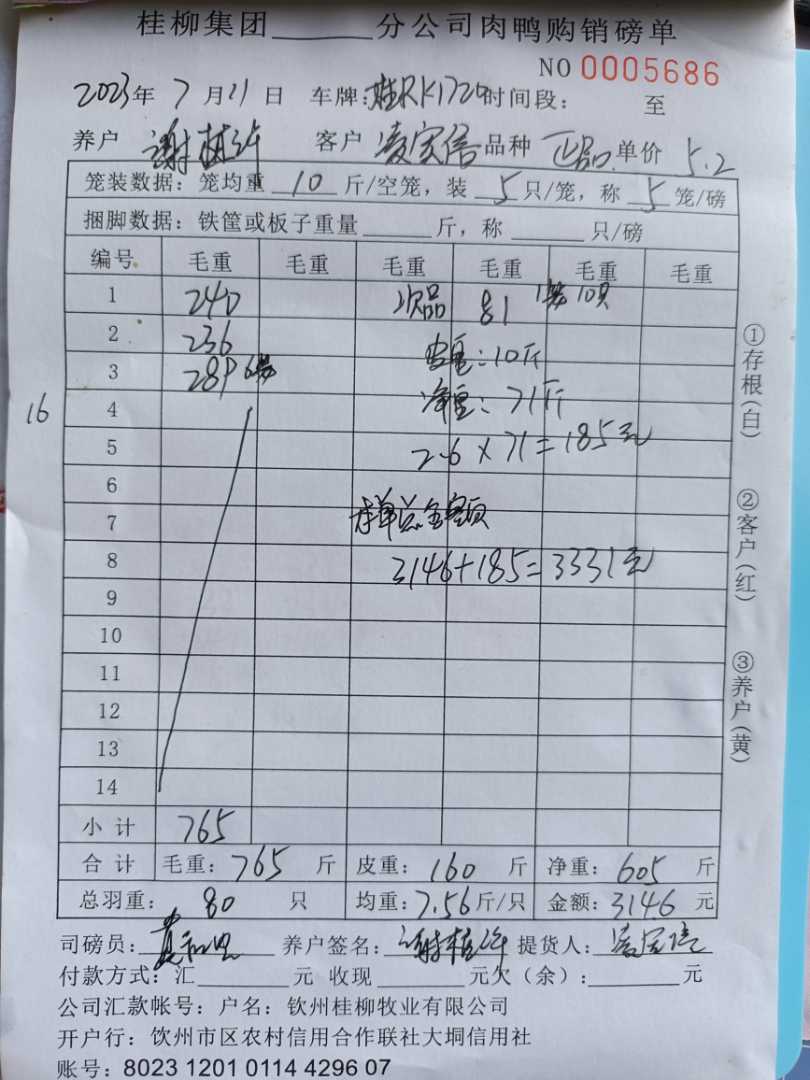 桂柳集团______分公司肉鸭购销磅单
NO 0005686
2023年 7月21日 车牌:桂RK1720时间段: 至
养户 谢桂年 客户 凌家信 品种 正品 单价 5.2
笼装数据:笼均重 10 斤/空笼,装 5 只/笼,称 5 笼/磅
捆脚数据:铁筐或板子重量______斤,称______只/磅
编号 毛重 毛重 毛重 毛重 毛重 毛重
1 240 次品 81 1笼10只
2 236 皮重:10斤
3 289 6笼 净重:71斤
16 4
5 2.6×71=185元
6
7 本单总金额
8 3146+185=3331元
9
10
11
12
13
14
小计 765
合计 毛重:765斤 皮重:160斤 净重:605斤
总羽重: 80 只 均重:7.56斤/只 金额:3146元
司磅员: 养户签名: 提货人:
付款方式:汇______元 收现______元欠(余):______元
公司汇款帐号:户名:钦州桂柳牧业有限公司
开户行:钦州市区农村信用合作联社大垌信用社
账号:8023 1201 0114 4296 07
①存根(白)
②客户(红)
③养户(黄)